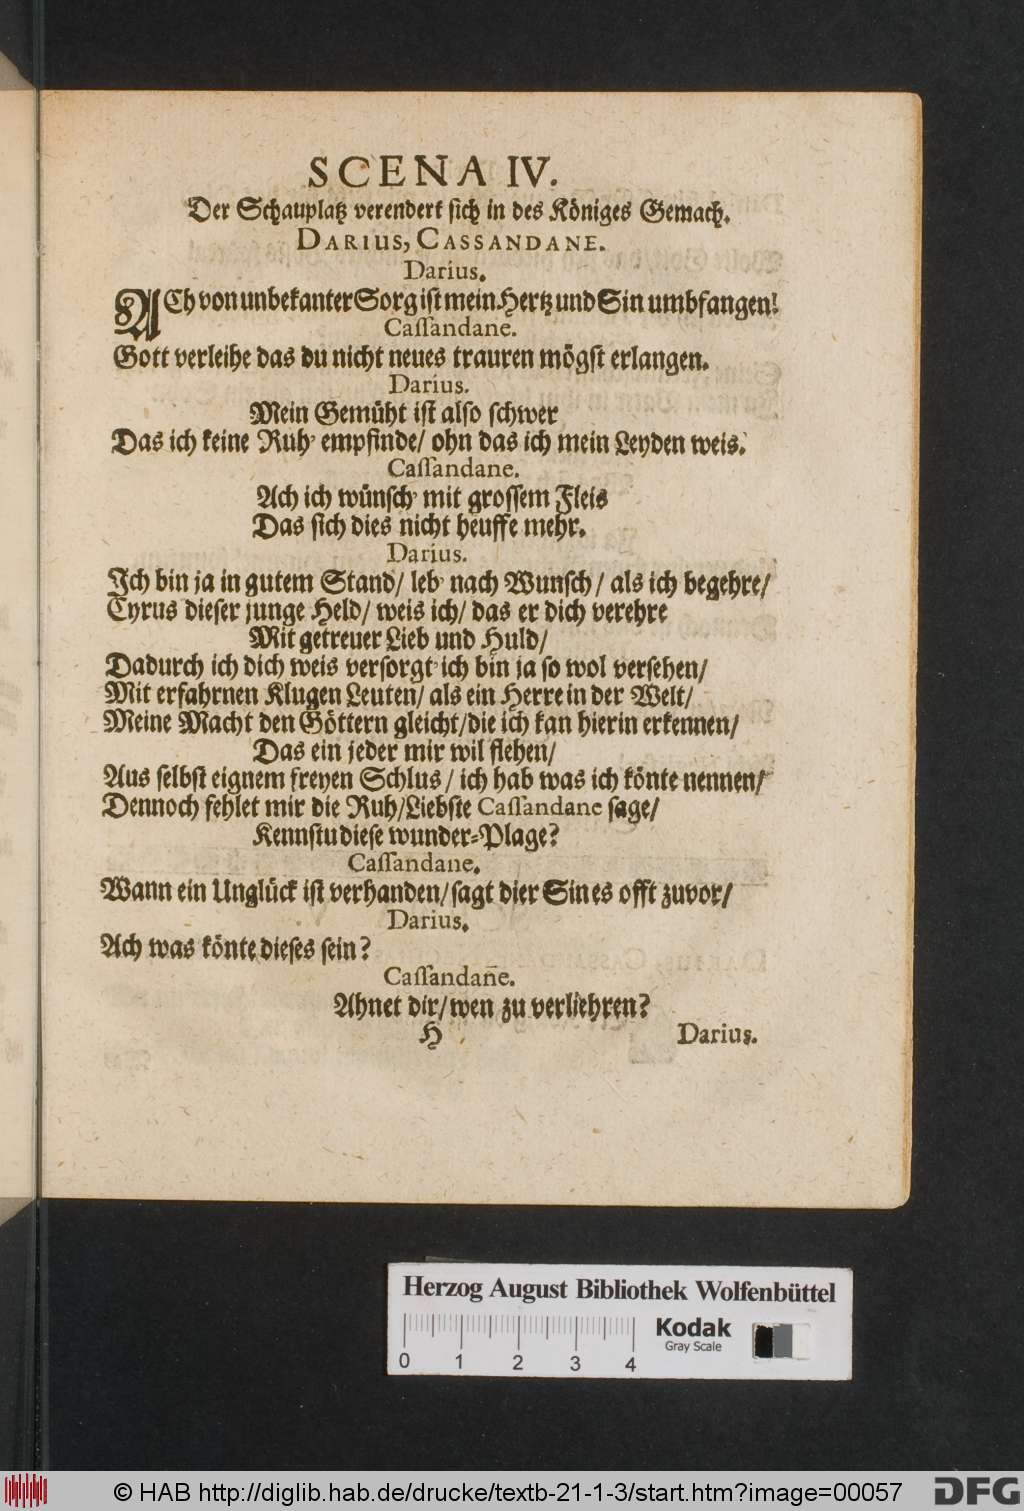 SCENA IV.
Der Schauplatz verendert sich in des Königes Gemach.
DARIUS, CASSANDANE.
Darius.
ACh von unbekanter Sorg ist mein Hertz und Sin umbfangen!
Cassandane.
Gott verleihe das du nicht neues trauren mögst erlangen.
Darius.
Mein Gemüht ist also schwer
Das ich keine Ruh' empfinde/ ohn das ich mein Leyden weis.
Cassandane.
Ach ich wünsch' mit grossem Fleis
Das sich dies nicht heuffe mehr.
Darius.
Ich bin ja in gutem Stand/ leb' nach Wunsch/ als ich begehre/
Cyrus dieser junge Held/ weis ich/ das er dich verehre
Mit getreuer Lieb und Huld/
Dadurch ich dich weis versorgt' ich bin ja so wol versehen/
Mit erfahrnen Klugen Leuten/ als ein Herre in der Welt/
Meine Macht den Göttern gleicht/ die ich kan hierin erkennen/
Das ein jeder mir wil flehen/
Aus selbst eignem freyen Schlus/ ich hab was ich könte nennen/
Dennoch fehlet mir die Ruh/ Liebste Cassandane sage/
Kennstu diese wunder-Plage?
Cassandane.
Wann ein Unglück ist verhanden/ sagt dier Sin es offt zuvor/
Darius.
Ach was könte dieses sein?
Cassandañe.
Ahnet dir/ wen zu verliehren?
H
Darius.
Herzog August Bibliothek Wolfenbüttel
Kodak
Gray Scale
0 1 2 3 4
© HAB http://diglib.hab.de/drucke/textb-21-1-3/start.htm?image=00057
DFG